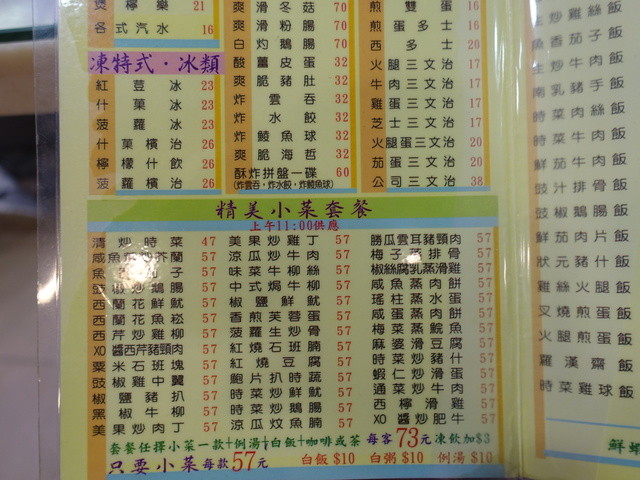 煲檸樂 21
各式汽水 16
凍特式·冰類
紅荳冰 23
什菓冰 23
菠蘿冰 23
什菓檳治 26
檸檬什飲 26
菠蘿檳治 26
爽滑冬菇 70
爽滑粉腸 70
白灼鵝腸 70
酸薑皮蛋 32
爽脆豬肚 32
炸雲吞 32
炸水餃 32
炸鯪魚球 32
爽脆海哲 32
酥炸拼盤一碟 60
(炸雲吞·炸水餃·炸鯪魚球)
煎雙蛋 16
煎蛋多士 16
西多士 20
火腿三文治 16
牛肉三文治 17
雞蛋三文治 17
芝士三文治 17
火腿蛋三文治 20
茄蛋三文治 20
公司三文治 38
精美小菜套餐
上午11:00供應
清炒時菜 47
芥蘭 57
魚 子 57
豉椒炒鵝腸 57
西蘭花鮮魷 57
西蘭花魚崧 57
西芹炒雞柳 57
XO醬西芹豬頸肉 57
粟米石班塊 57
豉椒雞中翼 57
椒鹽豬扒 57
黑椒牛柳 57
美果炒肉丁 57
美果炒雞丁 57
涼瓜炒牛肉 57
味菜牛柳絲 57
中式焗牛柳 57
椒鹽鮮魷 57
香煎芙蓉蛋 57
菠蘿生炒骨 57
紅燒石班腩 57
紅燒豆腐 57
鮑片扒時蔬 57
時菜炒鮮魷 57
時菜炒鵝腸 57
涼瓜炆魚腩 57
勝瓜雲耳豬頸肉 57
梅子蒸排骨 57
椒絲腐乳蒸滑雞 57
咸魚蒸肉餅 57
瑤柱蒸水蛋 57
咸蛋蒸肉餅 57
梅菜蒸鯇魚 57
麻婆滑豆腐 57
時菜炒豬什 57
蝦仁炒滑蛋 57
通菜炒牛肉 57
西檸滑雞 57
XO醬炒肥牛 57
套餐任擇小菜一款+例湯+白飯+咖啡或茶 每客73元 凍飲加$3
只要小菜每款57元 白飯$10 白粥$10 例湯$10
炒雞絲飯
魚香茄子飯
生炒牛肉飯
南乳豬手飯
時菜肉絲飯
時菜牛肉飯
鮮茄牛肉飯
豉汁排骨飯
豉椒鵝腸飯
鮮茄肉片飯
狀元豬什飯
雞絲火腿飯
叉燒煎蛋飯
火腿煎蛋飯
羅漢齋飯
時菜雞球飯
鮮蝦